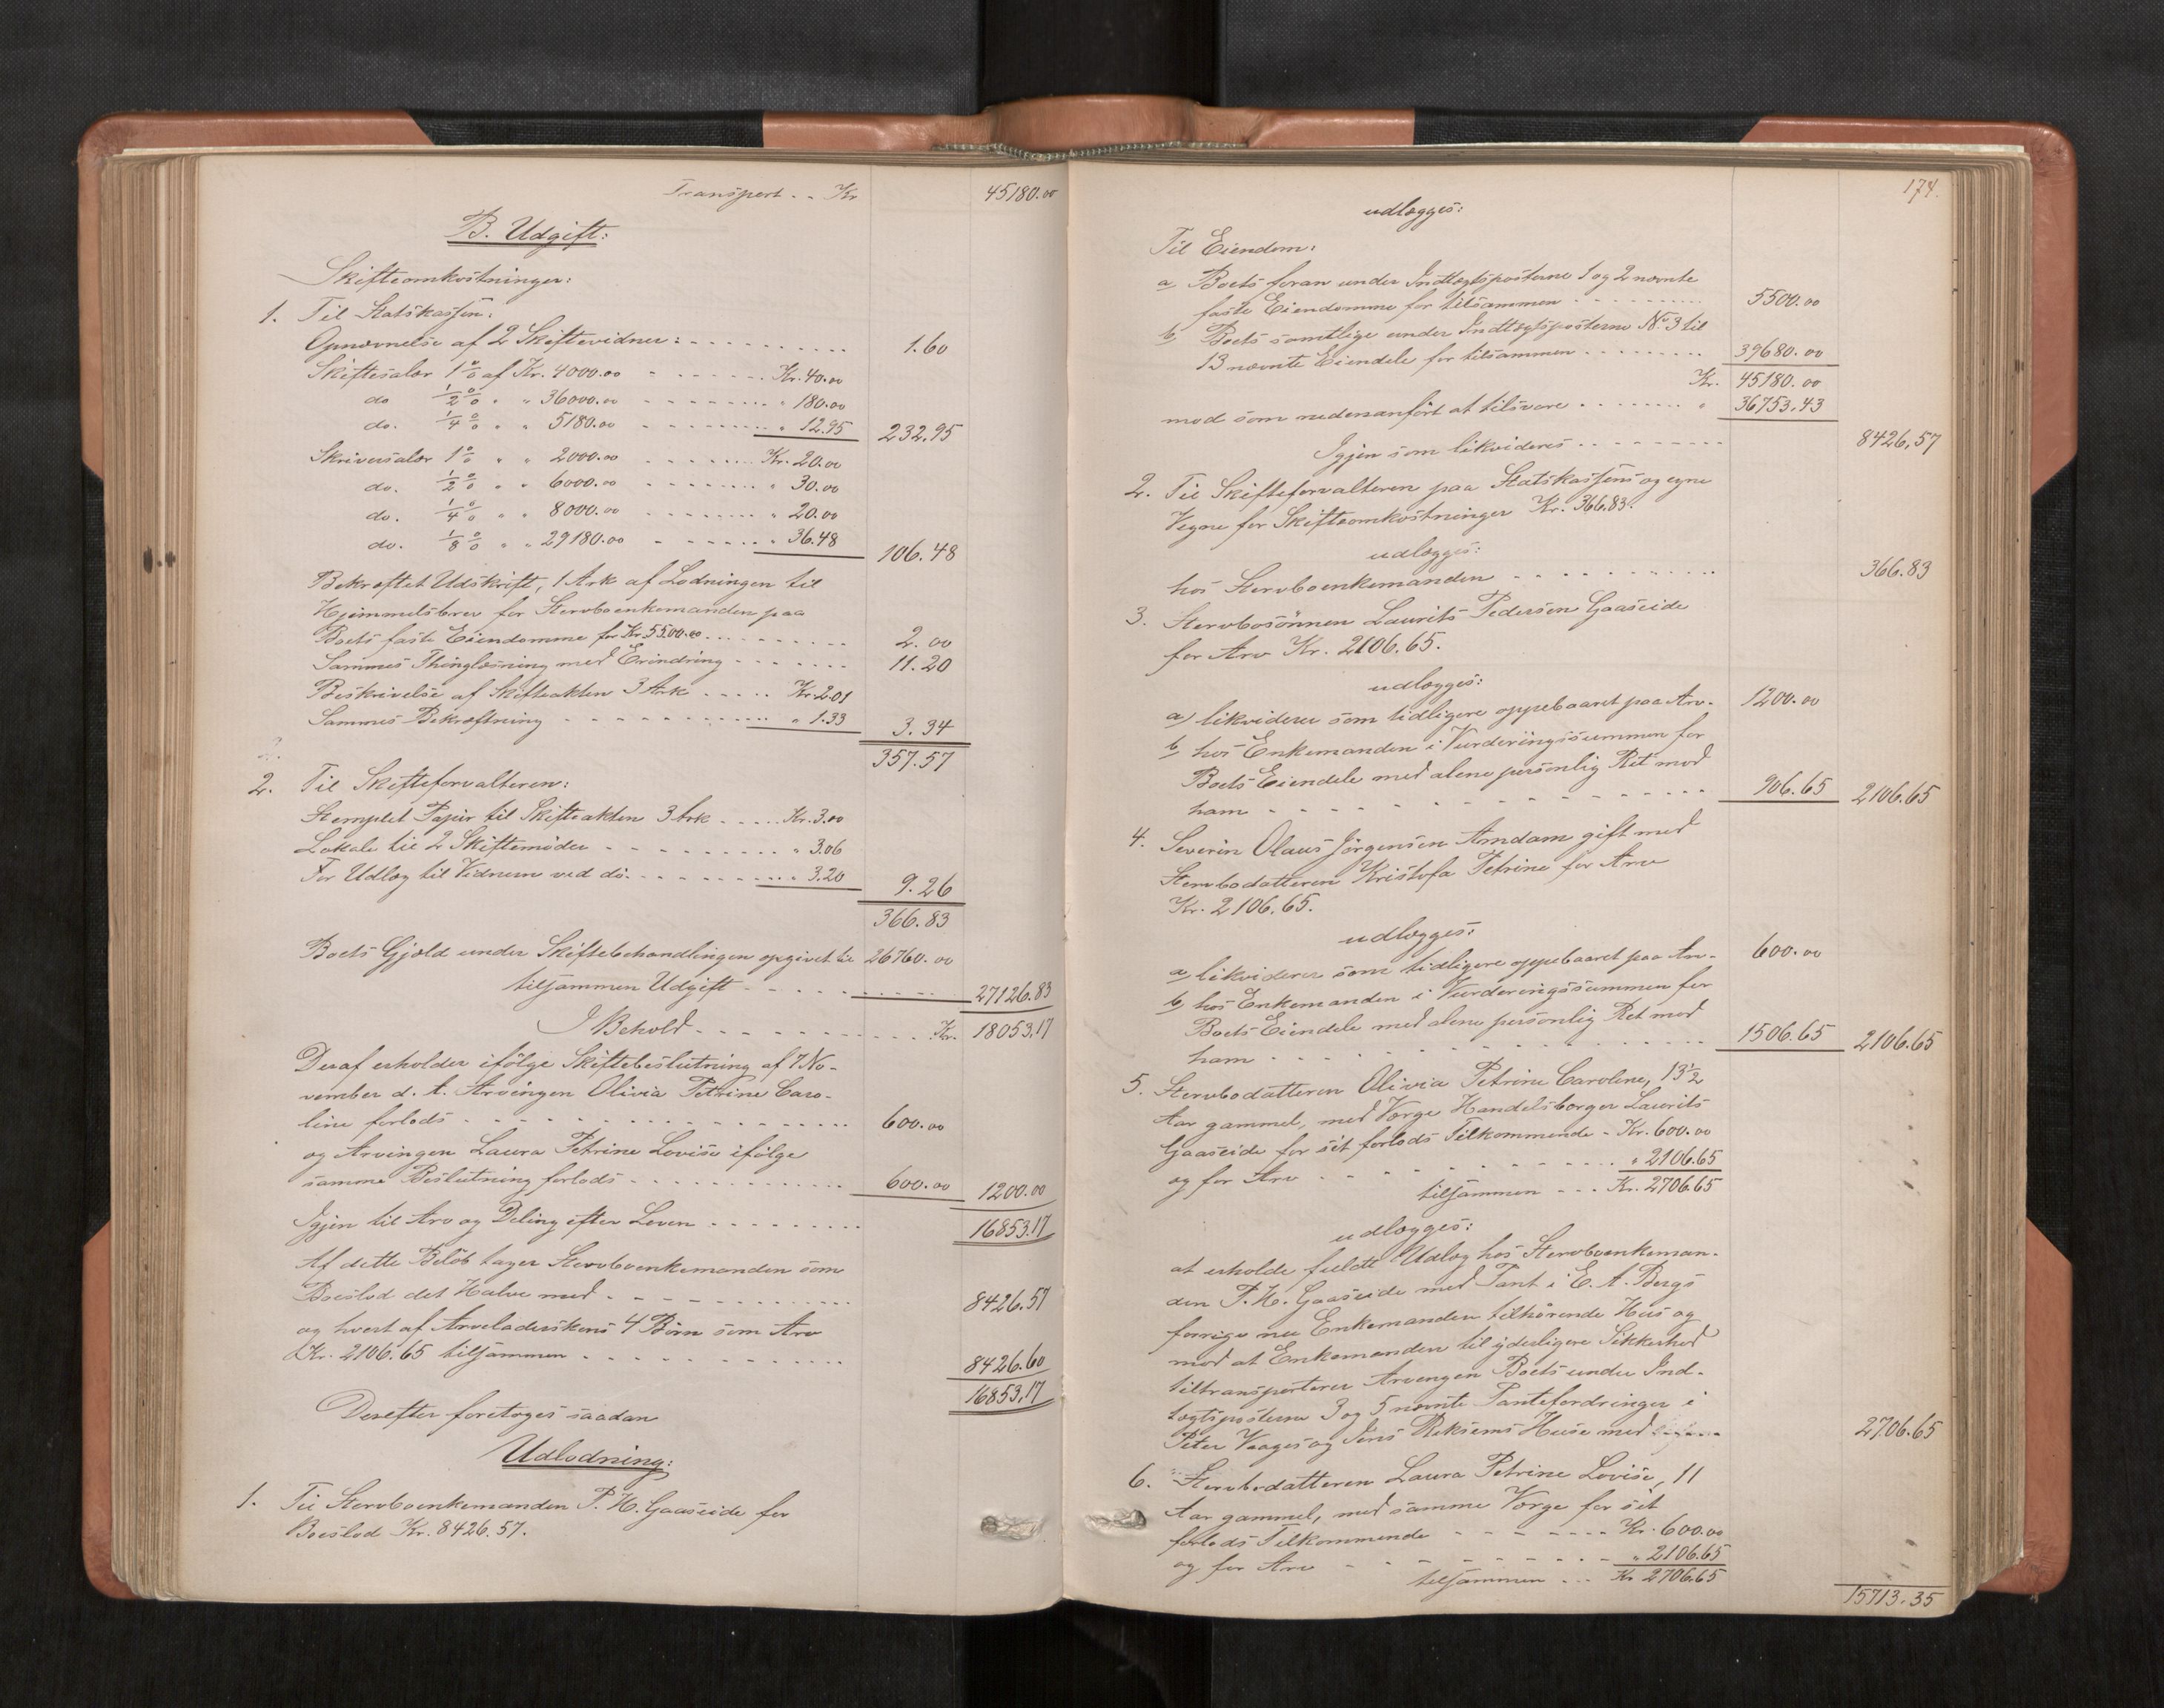 Transport .. Kr 45180.00
B. Udgift:
Skifteomkostninger:
1. Til Statskassen:
Opnævnelse af 2 Skiftevidner: 1.60
Skiftesalær 1 % af Kr. 4000.00 Kr. 40.00
do ½ % " " 36000.00 " 180.00
do. ¼ % " " 5180.00 " 12.95 232.95
Skriversalær 1 % " " 2000.00 Kr. 20.00
do. ½ % " " 6000.00 " 30.00
do. ¼ % " " 8000.00 " 20.00
do. ⅛ % " " 29180.00 " 36.48 106.48
Bekræftet Udskrift, 1 Ark af Lodningen til
Hjemmelsbrev for Stervboenkemanden paa
Boets faste Eiendomme for Kr. 5500.00 2.00
Sammes Thinglæsning med Erindring 11.20
Beskrivelse af Skifteakten 3 Ark Kr. 2.01
Sammes Bekræftning " 1.33 3.34
357.57
2. Til Skifteforvalteren:
Stemplet Papir til Skifteakten 3 Ark Kr. 3.00
Lokale til 2 Skiftemøder " 3.06
For Udlæg til Vidnerne ved do. " 3.20 9.26
366.83
Boets Gjæld under Skiftebehandlingen opgivet til 26760.00
tilsammen Udgift 27126.83
I Behold Kr. 18053.17
Deraf erholder ifölge Skiftebeslutning af 7 No-
vember d. A. Arvingen Olivia Petrine Caro-
line forlods 600.00
og Arvingen Laura Petrine Lovise ifölge
samme Beslutning forlods 600.00 1200.00
Igjen til Arv og Deling efter Loven 16853.17
Af dette Beløb tager Stervboenkemanden som
Boeslod det Halve med 8426.57
og hvert af Arveladerskens 4 Börn som Arv
Kr. 2106.65 tilsammen 8426.60
16853.17
Derefter foretoges saadan
Udlodning:
1. Til Stervboenkemanden P. H. Gaaseide for
Boeslod Kr. 8426.57.
174.
udlægges:
Til Eiendom:
a Boets foran under Indtægtsposterne 1 og 2 nævnte
faste Eiendomme for tilsammen 5500.00
b Boets samtlige under Indtægtsposterne No 3 til
13 nævnte Eiendele for tilsammen 39680.00
Kr. 45180.00
mod som nedenanfört at tilsvare " 36753.43
Igjen som likvideres 8426,57
2. Til Skifteforvalteren paa Statskassens og egne
Vegne for Skifteomkostninger Kr. 366.83.
udlægges:
hos Stervboenkemanden 366.83
3. Stervbosönnen Laurits Pedersen Gaaseide
for Arv Kr. 2106.65.
udlægges:
a) likviderer som tidligere oppebaaret paa Arv. 1200.00
b hos Enkemanden i Vurderingssummen for
Boets Eiendele med alene personlig Ret mod
ham 906.65 2106.65
4. Severin Olaus Jörgensen Amdam gift med
Stervbodatteren Kristofa Petrine for Arv
Kr. 2106.65.
udlægges:
a likviderer som tidligere oppebaaret paa Arv. 600.00
b, hos Enkemanden i Vurderingssummen for
Boets Eiendele med alene personlig Ret mod
ham 1506.65 2106.65
5. Stervbodatteren Olivia Petrine Caroline, 13½
Aar gammel, med Værge Handelsborger Laurits
Gaaseide for sit forlods Tilkommende Kr. 600.00
og for Arv " 2106.65
tilsammen Kr. 2706.65
udlægges:
at erholde fuldt Udlæg hos Stervboenkeman-
den P. H. Gaaseide med Pant i E. A. Bergs
forrige nu Enkemanden tilhörende Hus og
mod at Enkemanden til yderligere Sikkerhed
tiltransporterer Arvingen Boets under Ind-
tægtsposterne 3 og 5 nævnte Pantefordringer i
Peter Vaages og Huse med 2706.65
6. Stervbodatteren Laura Petrine Lovise, 11
Aar gammel, med samme Værge for sit
forlods Tilkommende Kr. 600.00
og for Arv " 2106.65
tilsammen Kr 2706.65
15713.35